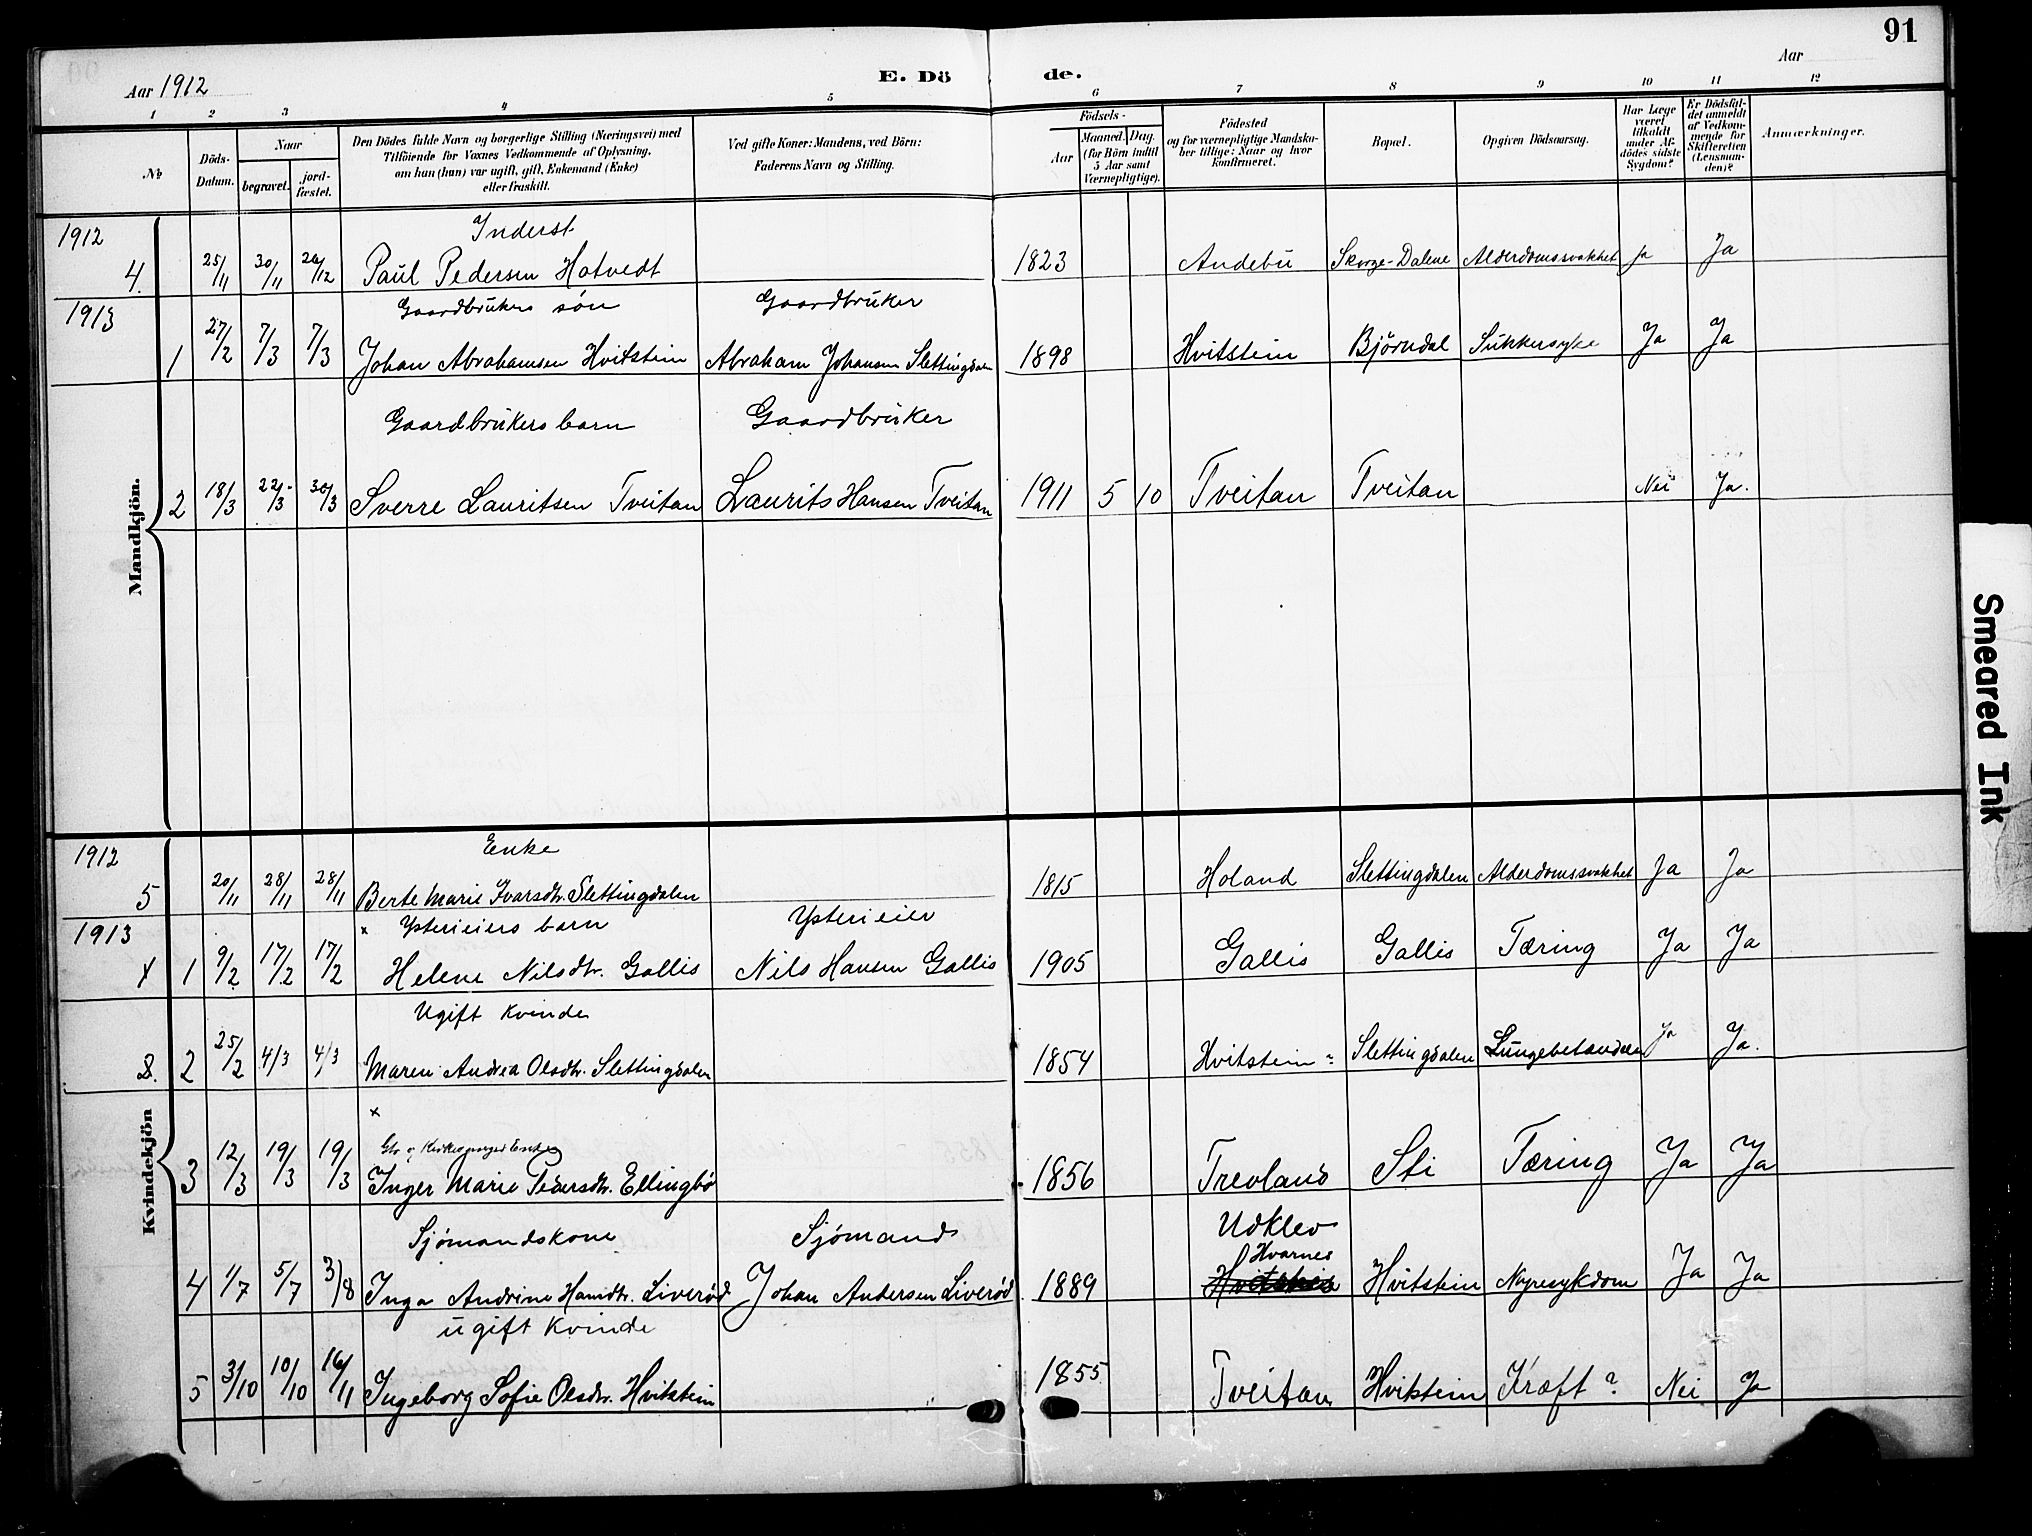 91
Aar 1912
E. Dö de.
Aar
1 2 3 4 5 6 7 8 9 10 11 12
№
Döds-Datum.
Naar
begravet.
jord-fæstet.
Den Dödes fulde Navn og borgerlige Stilling (Næringsvei) med
Tilföiende for Voxnes Vedkommende af Oplysning,
om han (hun) var ugift, gift, Enkemand (Enke)
eller fraskilt.
Ved gifte Koner: Mandens, ved Börn:
Faderens Navn og Stilling.
Födsels-
Aar
Maaned. Dag.
(for Börn indtil
5 Aar samt
Værnepligtige).
Födested
og for værnepligtige Mandskaber tillige: Naar og hvor
konfirmeret.
Bopæl.
Opgiven Dödsaarsag.
Har Læge
været
tilkaldt
under Afdödes sidste
Sygdom?
Er Dödsfaldet anmeldt
af Vedkommende for
Skifteretten
(Lensmanden)?
Anmærkninger.
Mandkjön.
1912
Inderst
4. 25/11 30/11 26/12 Paul Pedersen Hotvedt 1823 Andebu Skorge-Dalene Alderdomssvakhet Ja Ja
1913
Gaardbrukers søn Gaardbruker
1 27/2 7/3 7/3 Johan Abrahamsen Hvitstein Abraham Johansen Slettingdalen 1898 Hvitstein Björndal Sukkersyke Ja Ja
Gaardbrukers barn Gaardbruker
2 18/3 22/3 30/3 Sverre Lauritsen Tveitan Laurits Hansen Tveitan 1911 5 10 Tveitan Tveitan Nei Ja.
Kvindekjön
1912
Enke
5 20/11 28/11 28/11 Berte Marie Ivarsdtr. Slettingdalen 1815 Holand Slettingdalen Alderdomssvakhet Ja Ja
1913
x Ysterieiers barn Ysterieier
x 1 9/2 17/2 17/2 Helene Nilsdtr. Gallis Nils Hansen Gallis 1905 Gallis Gallis Tæring Ja Ja
Ugift Kvinde
2 25/2 4/3 4/3 Maren Andrea Olsdtr. Slettingdalen 1854 Hvitstein ? Slettingdalen Lungebetændelse Ja Ja.
x
Enke
3 12/3 19/3 19/3 Inger Marie Pedersdtr. Ellingbö 1856 Trevland Sti Tæring Ja Ja
Sjømandskone Sjømand Udklev
Hvarnes
4 1/7 5/7 3/8 Inga Andrine Hansdtr. Liverød Johan Andersen Liverød 1889 Hvitstein Hvitstein Nyresykdom Ja Ja
ugift Kvinde
5 3/10 10/10 16/11 Ingeborg Sofie Olsdtr. Hvitstein 1855 Tveitan Hvitstein Kræft ? Nei Ja
Smeared Ink